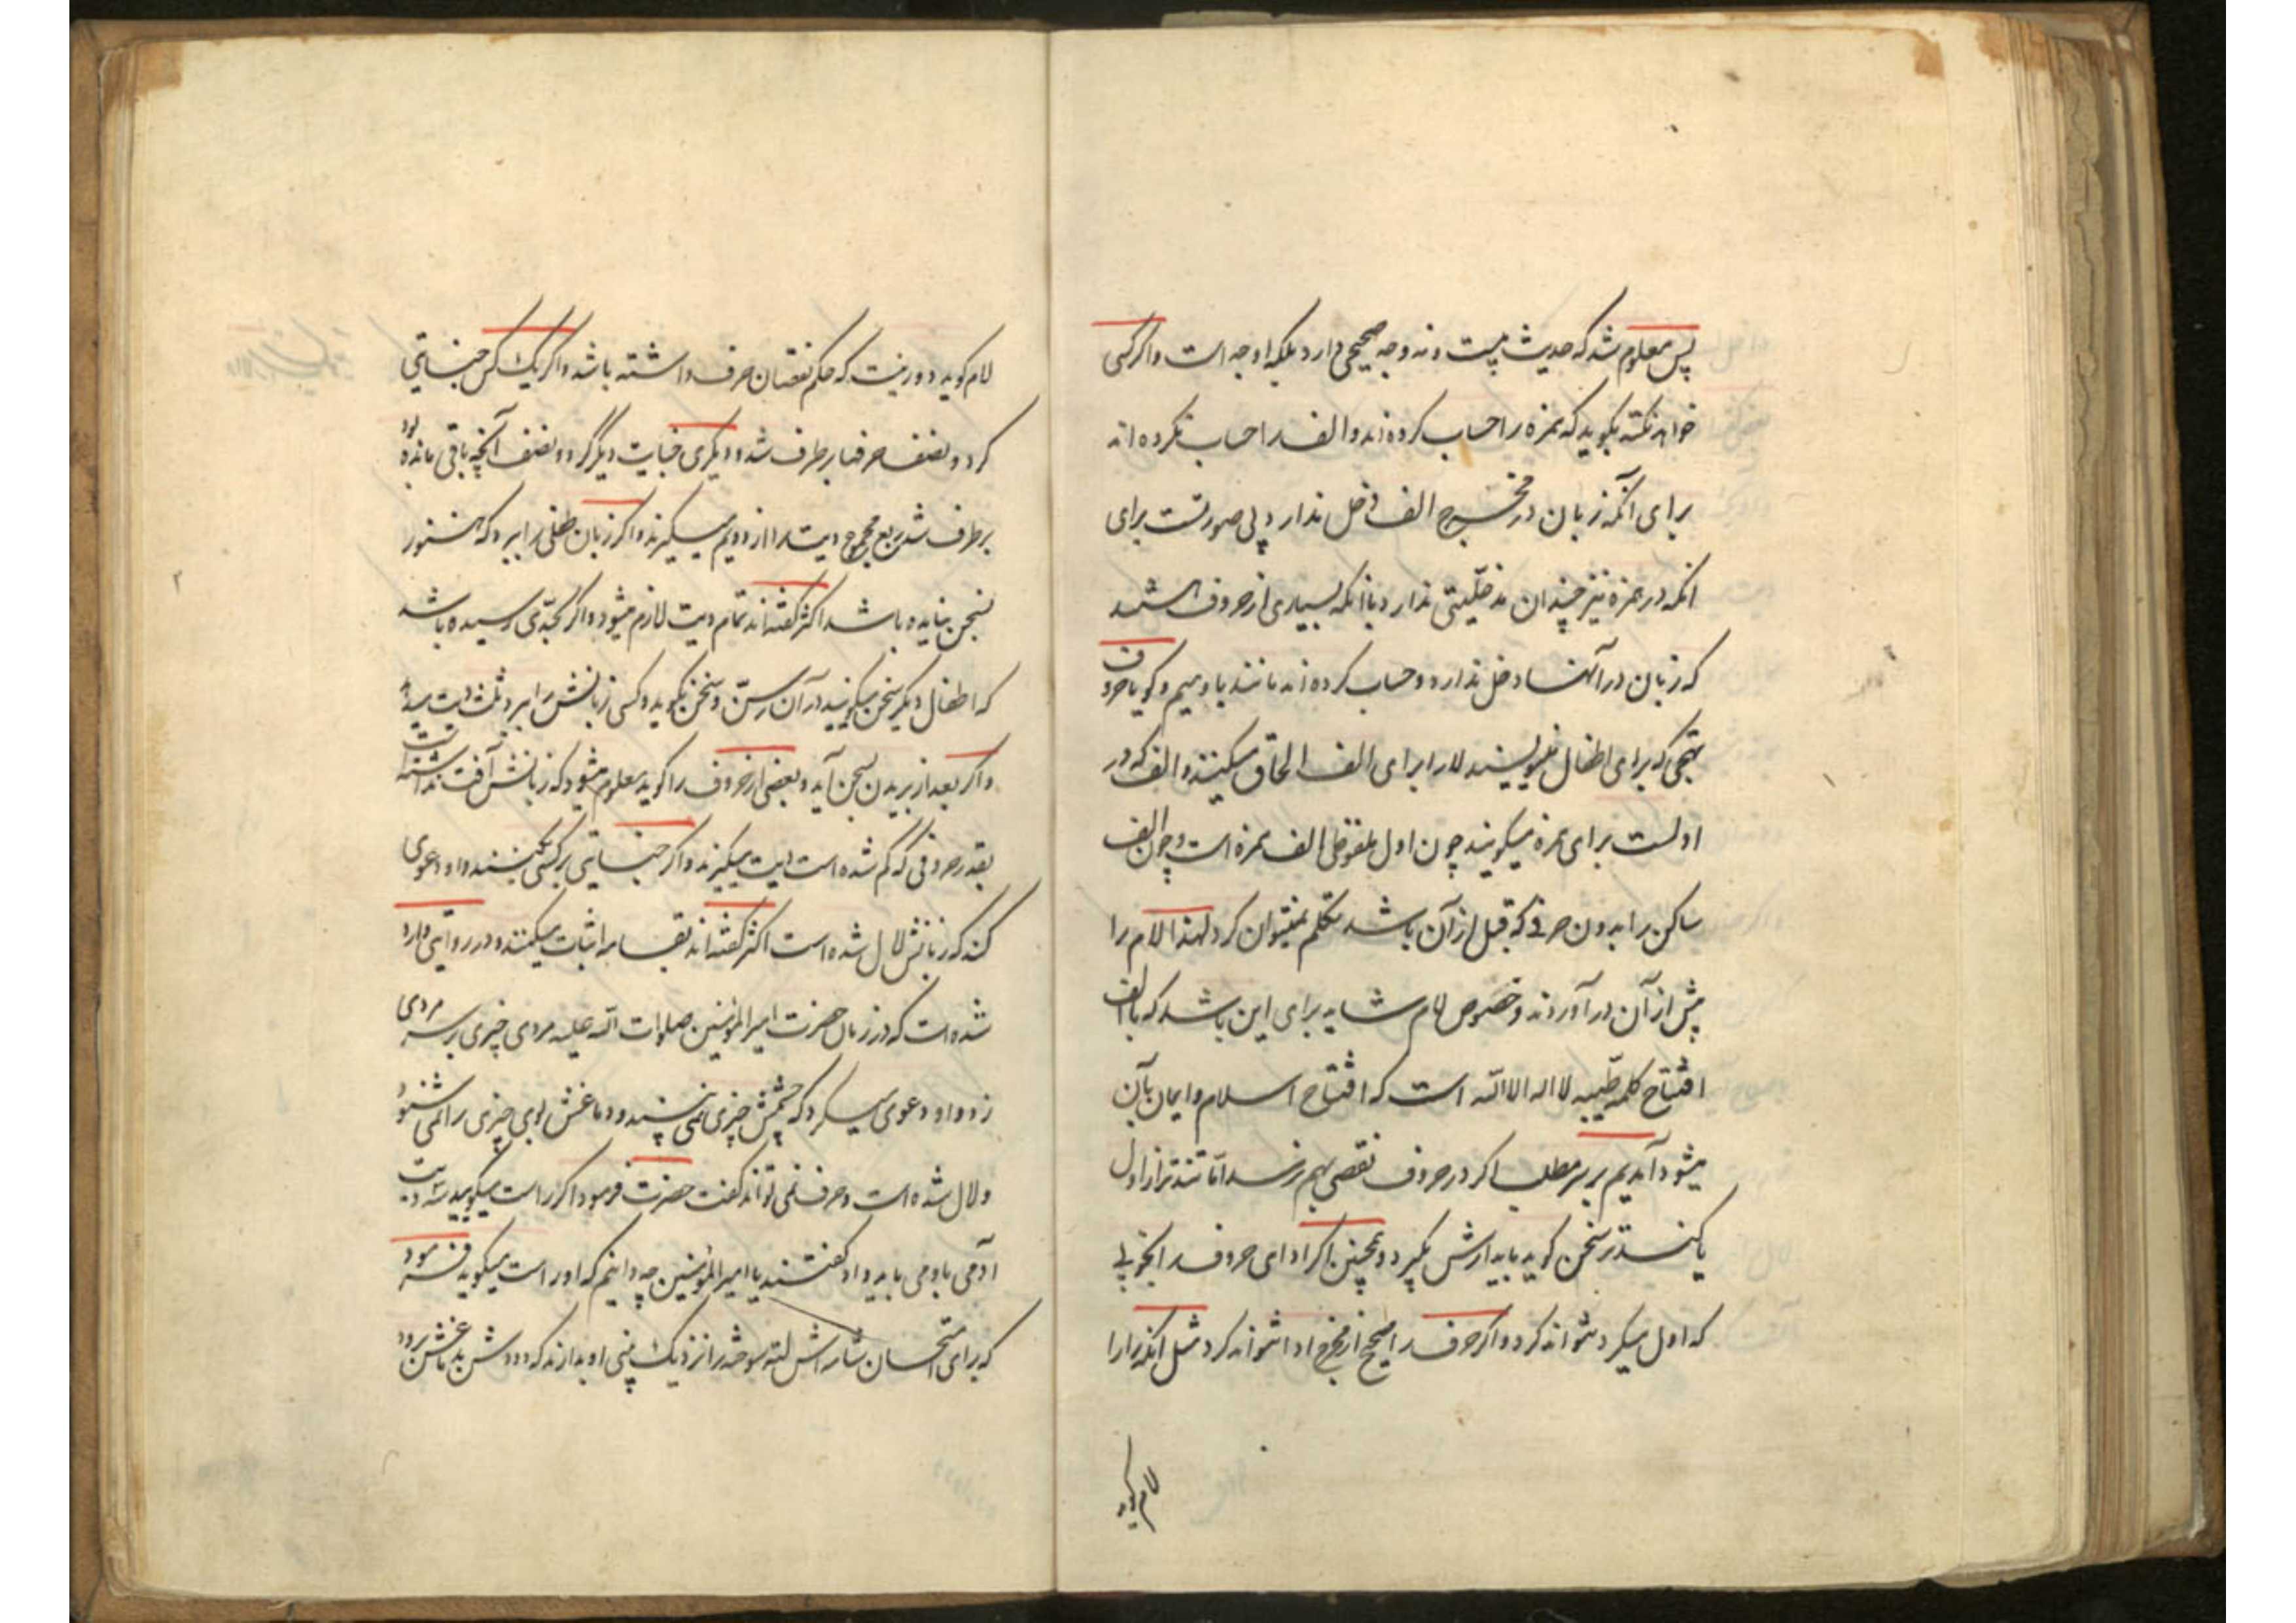 پس معلوم شد که حدیث بیست و نه وجه صحیحی دارد بلکه اوجه است و اگر کسی
خواهد نکته بگوید که همزه را حساب کرده‌اند و الف را حساب نکرده اند
برای آنکه زبان در مخرج الف دخل ندارد پی صورتست برای
انکه در همزه نیز چندان مدخلیتی ندارد با آنکه بسیاری از حروف هستند
که زبان در آنها دخل ندارد و حساب کرده اند مانند با و میم و گویا حروف
تهجی که برای اطفال مینویسند لا را برای الف الحاق میکنند و الف که در
اولست برای همزه میگویند چون اول ملفوظی الف همزه است و چون الف
ساکن را بدون حرفی که قبل از آن باشد تکلم نمیتوان کرد لهذا لام را
پیش از آن در آوردند و خصوص لام شاید برای این باشد که با الف
افتتاح کلمه طیبه لا اله الا الله است که افتتاح اسلام و ایمان بآن
میشود آمدیم بر سر مطلب اگر در حروف نقصی بهم نرسد اما تندتر از اول
یا کندتر سخن گوید باید ارش بگیرد و همچنین اگر ادای حروف را بخوبی
که اول میکرد نتواند کرد و اگر حرف را صحیح از مخرج ادا نتواند کرد مثل آنکه را را
لام گوید
لام گوید دور نیست که حکم نقصان حرف داشته باشد و اگر یک کس جنایتی
کرد و نصف حرفها برطرف شد و دیگری جنایت دیگر کرد و نصف آنچه باقی مانده بود
برطرف شد ربع مجموع دیت را از دویم میگیرند و اگر زبان طفلی را ببرد که هنوز
بسخن نیامده باشد اکثر گفته‌اند تمام دیت لازم میشود و اگر بحدی رسیده باشد
که اطفال دیگر سخن میگویند در آن سن و سخن نگوید و کسی زبانش را ببرد ثلث دیت میدهد
و اگر بعد از بریدن بسخن آید و بعضی از حروف را گوید معلوم میشود که زبانش آفت نداشته است
بقدر حروفی که کم شده است دیت میگیرند و اگر جنایتی بر کسی بکنند و او دعوی
کند که زبانش لال شده است اکثر گفته‌اند بقسامه اثبات میکنند و در روایتی وارد
شده است که در زمان حضرت امیر المؤمنین صلوات الله علیه مردی چیزی بر سر مردی
زد و او دعوی میکرد که چشمش چیزی نمی بیند و دماغش بوی چیزی را نمی شنود
و لال شده است و حرف نمی تواند گفت حضرت فرمود اگر راست میگوید سه دیت
آدمی باو می باید داد گفتند یا امیر المؤمنین چه دانیم که او راست میگوید فرمود
که برای امتحان شامه اش لته سوخته را نزدیک بینی او بدارند که دودش بدماغش رود